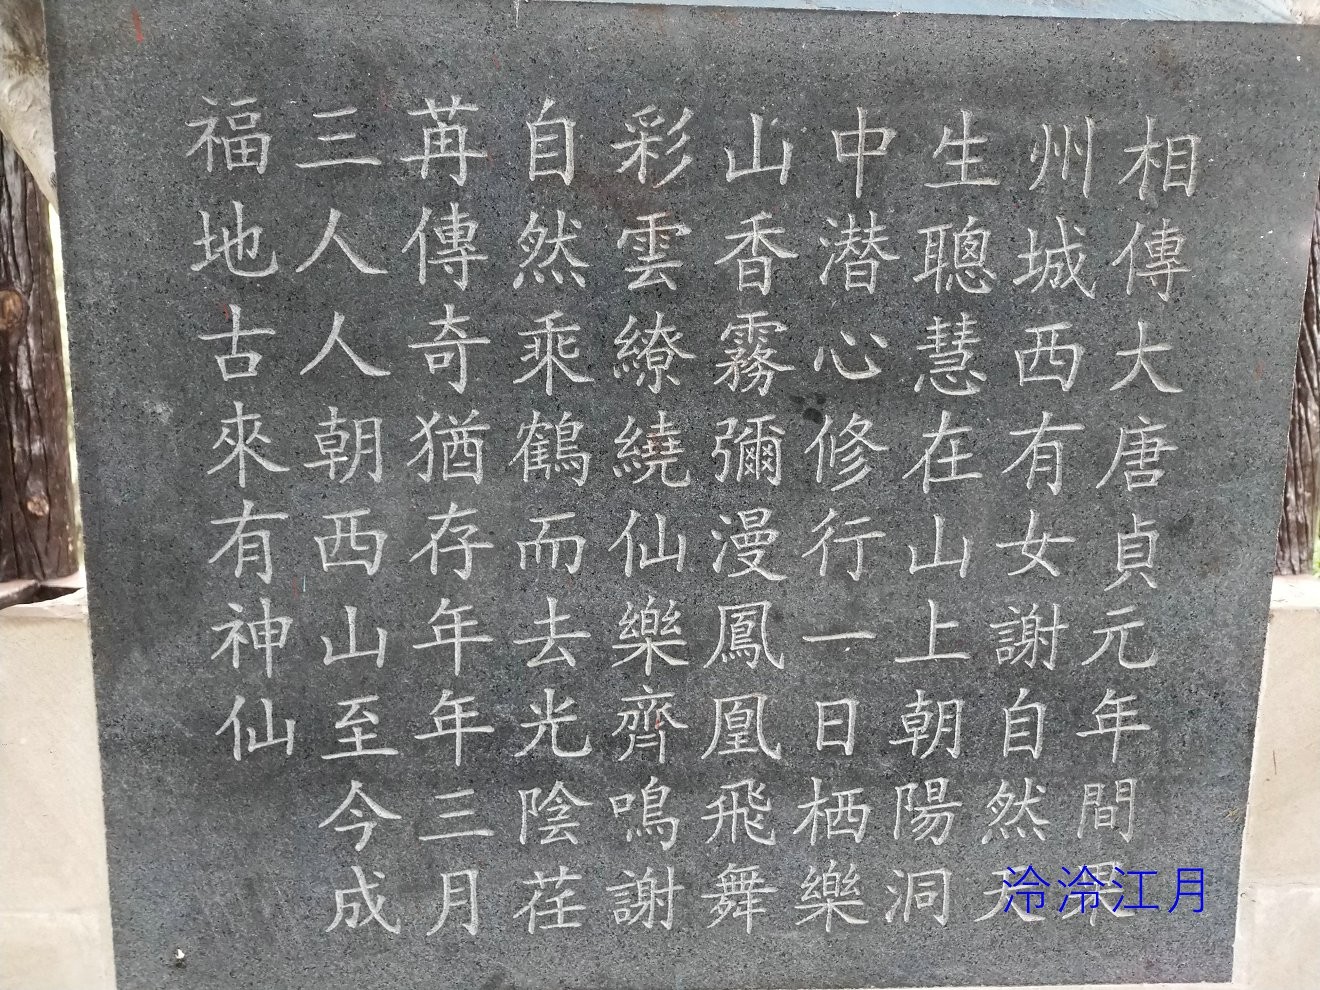 相傳大唐貞元年間果
州城西有女謝自然天
生聰慧在山上朝陽洞
中潜心修行一日栖樂
山香霧彌漫鳳凰飛舞
彩雲繚繞仙樂齊鳴謝
自然乘鶴而去光陰荏
苒傳奇猶存年年三月
三人人朝西山至今成
福地古來有神仙
泠泠江月